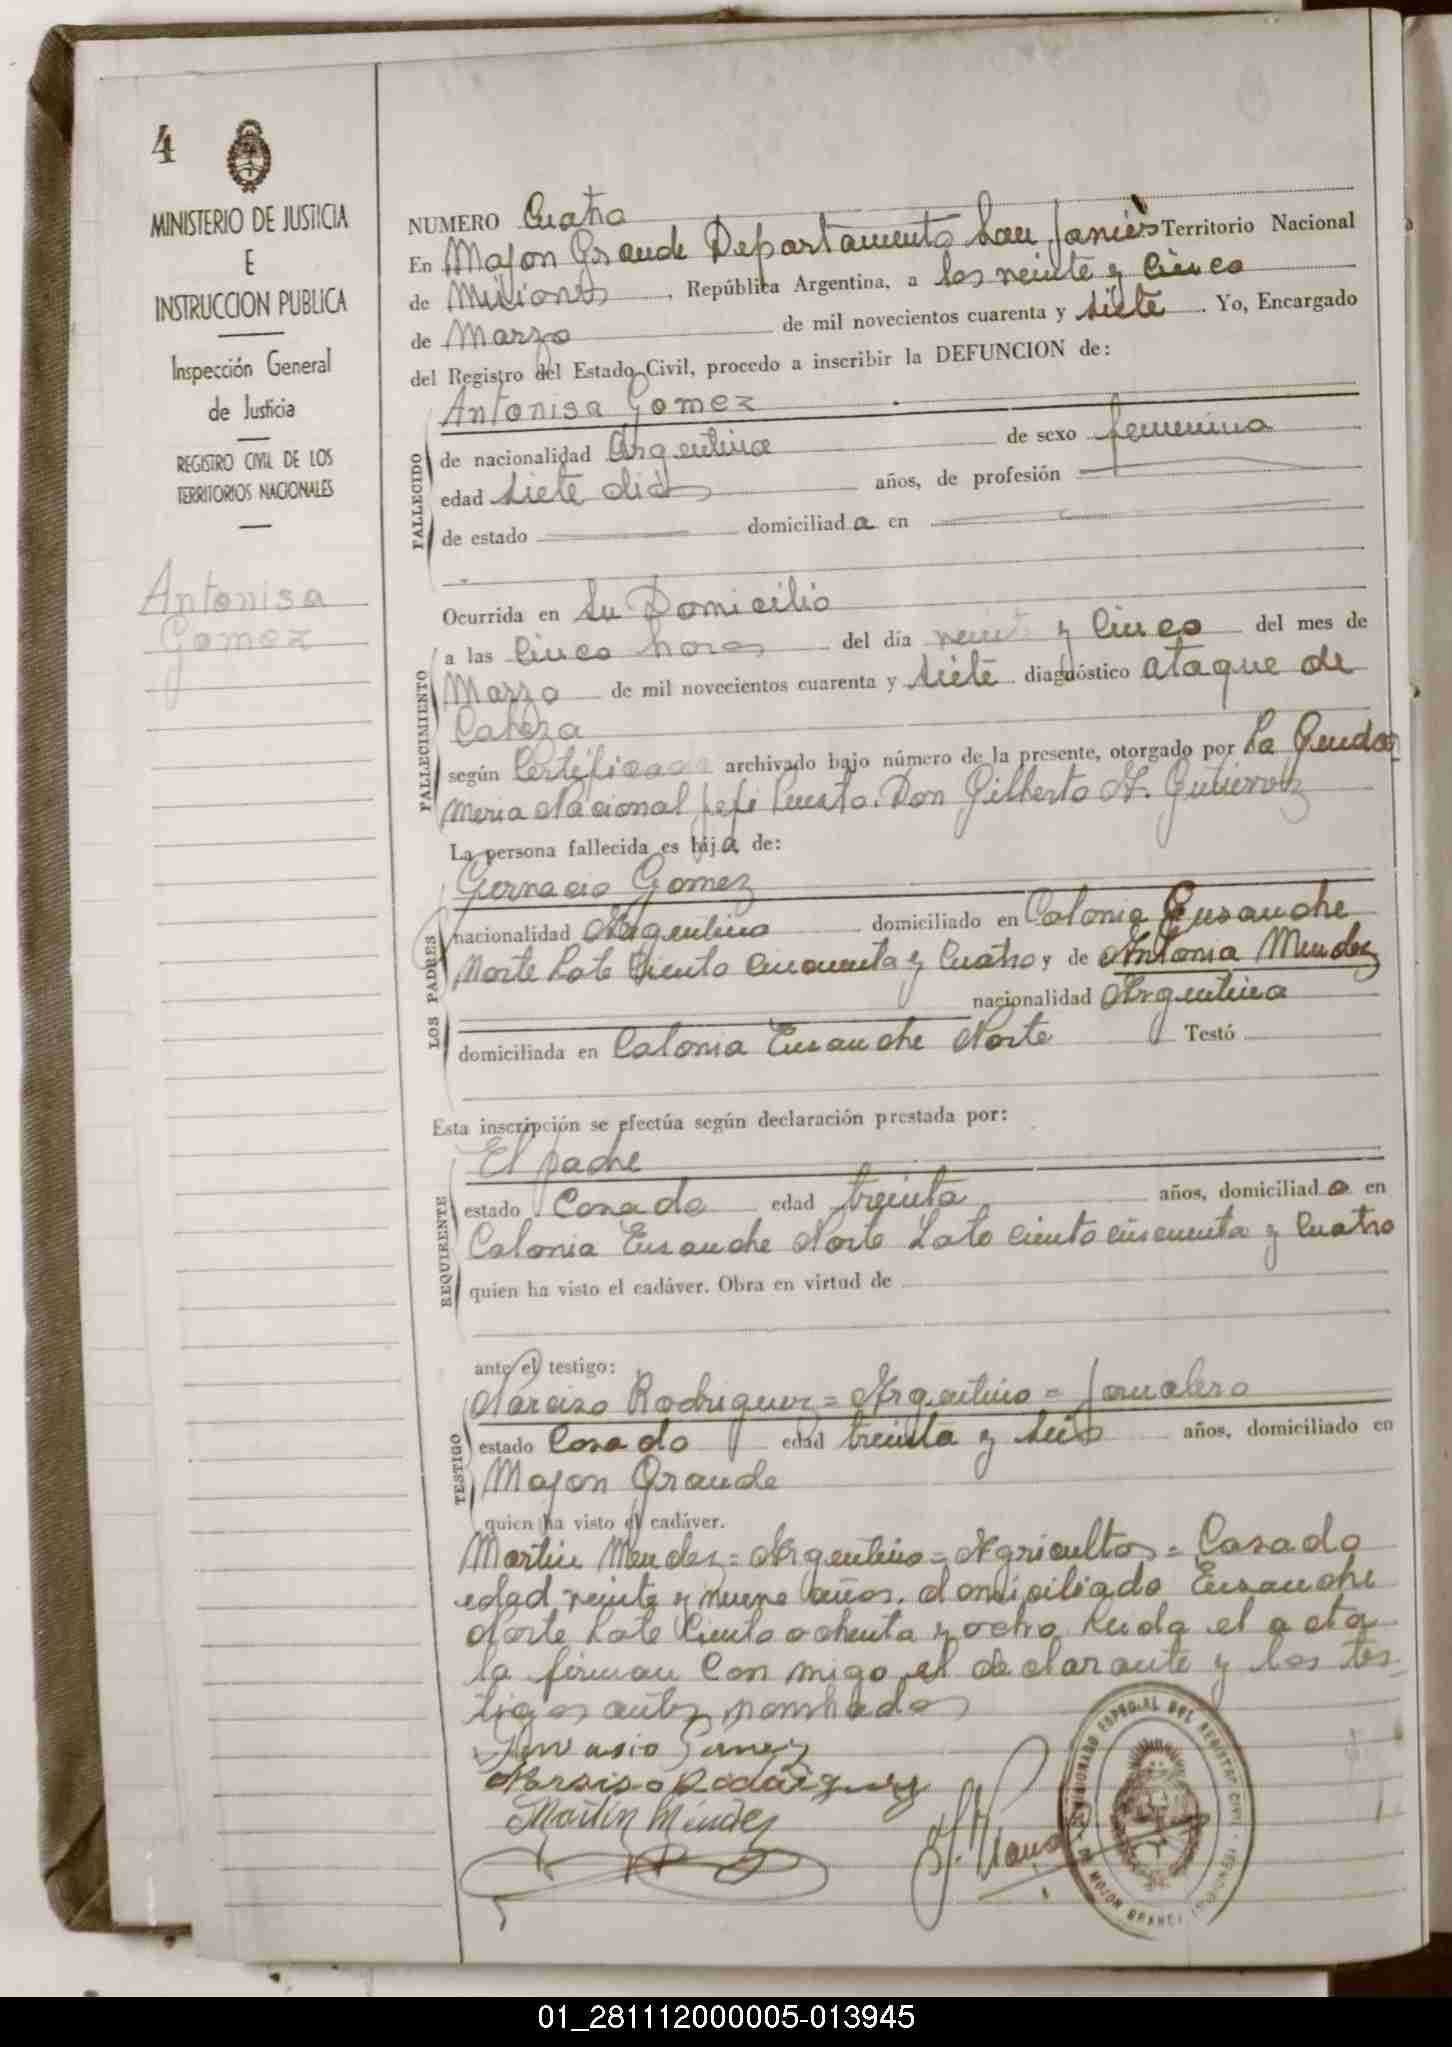 4
MINISTERIO DE JUSTICIA
E
INSTRUCCION PUBLICA
Inspección General
de Justicia
REGISTRO CIVIL DE LOS
TERRITORIOS NACIONALES
Antonisa
Gomez
NUMERO Cuatro
En Mojon Grande Departamento San Janiès Territorio Nacional
de Misiones, República Argentina, a los veinte y cinco
de Marzo de mil novecientos cuarenta y siete. Yo, Encargado
del Registro del Estado Civil, procedo a inscribir la DEFUNCION de:
Antonisa Gomez
FALLECIDO
de nacionalidad Argentina de sexo femenina
edad siete dias años, de profesión
de estado domiciliada en
Ocurrida en Su Domicilio
FALLECIMIENTO
a las cinco horas del día veinte y cinco del mes de
Marzo de mil novecientos cuarenta y siete diagnóstico ataque de
Cabeza
según Certificado archivado bajo número de la presente, otorgado por La Genda
meria Nacional Jefi Puesto. Don Gilberto A. Gutierrez
La persona fallecida es hija de:
LOS PADRES
Gernacio Gomez
nacionalidad Argentino domiciliado en Colonia Ensanche
Norte Lote Ciento Cincuenta y Cuatro y de Antonia Mendez
nacionalidad Argentina
domiciliada en Colonia Ensanche Norte Testó
Esta inscripción se efectúa según declaración prestada por:
REQUIRENTE
El padre
estado Casado edad treinta años, domiciliado en
Colonia Ensanche Norte Lote ciento cincuenta y Cuatro
quien ha visto el cadáver. Obra en virtud de
ante el testigo:
TESTIGO
Narciso Rodriguez = Argentino = Jornalero
estado Casado edad treinta y seis años, domiciliado en
Mojon Grande
quien ha visto el cadáver.
Martin Mendez = Argentino = Agricultor = Casado
edad veinte y nueve años. domiciliado Ensanche
Norte Lote Ciento ochenta y ocho Leida el acta
la firman Con migo el declarante y los tes-
tigos antes nombrados
Narsiso Rodriguez
Martín Méndez
01_281112000005-013945